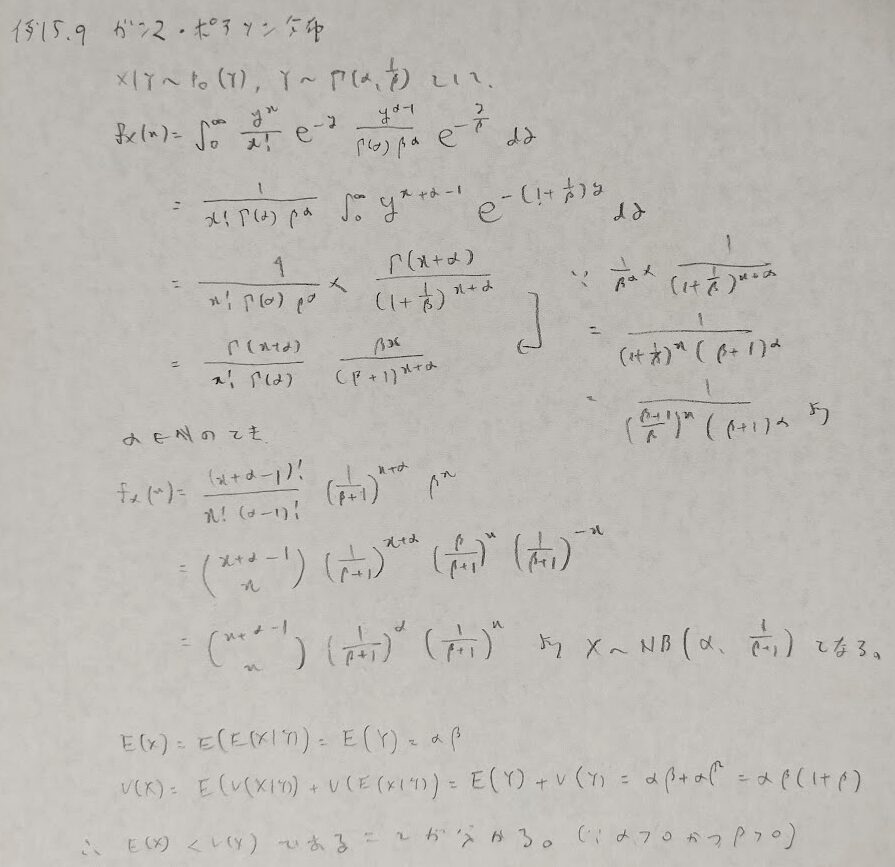 例15.9 ガンマ・ポアソン分布
X|Y ~ Po(Y), Y ~ Γ(α, 1/β) として、
f_X(x) = ∫_0^∞ y^x/x! e^{-y} y^{α-1}/(Γ(α) β^α) e^{-y/β} dy
= 1/(x! Γ(α) β^α) ∫_0^∞ y^{x+α-1} e^{-(1+1/β)y} dy
= 1/(x! Γ(α) β^α) × Γ(x+α)/(1+1/β)^{x+α}
= Γ(x+α)/(x! Γ(α)) β^x/(β+1)^{x+α}
∵ 1/β^α × 1/(1+1/β)^{x+α}
= 1/((1+1/β)^x (β+1)^α)
= 1/(((β+1)/β)^x (β+1)^α) より
α∈N のとき
f_X(x) = (x+α-1)!/(x! (α-1)!) (1/(β+1))^{x+α} β^x
= (x+α-1 x) (1/(β+1))^{x+α} (β/(β+1))^x (1/(β+1))^{-x}
= (x+α-1 x) (1/(β+1))^α (1/(β+1))^x より X ~ NB(α, 1/(β+1)) となる。
E(X) = E(E(X|Y)) = E(Y) = αβ
V(X) = E(V(X|Y)) + V(E(X|Y)) = E(Y) + V(Y) = αβ + αβ^2 = αβ(1+β)
∴ E(X) < V(X) であることが分かる。(∵ α>0 かつ β>0)